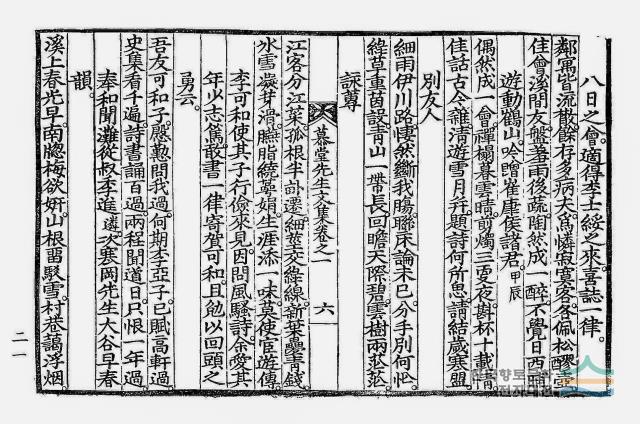 八日之會適得李士綏之來喜誌一律
鄰寓皆流散餘存多病夫爲憐寂寞客各佩松醪壺
佳會溪閒友盤羞雨後蔬陶然成一醉不覺日西
遊動鶴山吟贈崔康侯諸君甲辰
偶然成一會禪榻暮雲晴剪燭三更夜斟杯十載情
佳話古今雜清遊雪月行題詩何所思請結歲寒盟
別友人
細雨伊川路悽然斷我膓聯床論未已分手別何忙
綠草重茵設靑山一帶長回瞻天際碧雲樹兩茫茫
詠蓴
慕堂先生文集卷之一 六
江客分江菜孤根半卦遷細莖交綠線新葉疊靑錢
水雪凝芽滑臙脂繞萼娟生涯添一味莫使宦遊傳
李可和使其子行儉來見因問風騷詩余愛其
年少志篤散書一律寄賀可和且勉以回頭之
勇云
吾友可和子慇懃問我過何期李亞子已賦高軒過
史集看千遍詩書誦百過兩程聞道日只恨一年過
奉和聞灘從叔李進遴次寒岡先生大谷早春
韻
溪上春光早南牕梅欲姸山根留駁雪村巷藹浮烟
二一